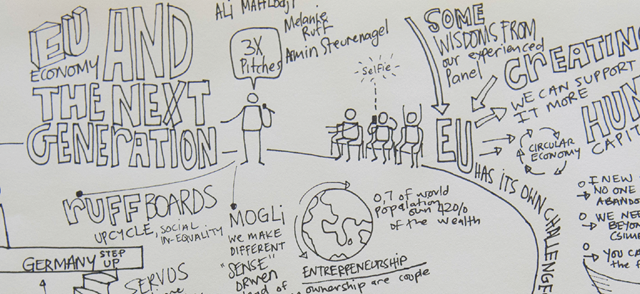 EU
ECONOMY
AND
THE NEXT
GENERATION
3X
Pitches
Melanie
Ruff
Armin Steurenagel
Selfie
SOME
WISDOMS FROM
our experienced
Panel
CREATING
WE CAN SUPPORT
IT MORE
HUM
CAPIT
CIRCULAR
ECONOMY
EU
HAS ITS OWN CHALLENGE
I NEW
NO ONE
ABANDO
WE NEE
BEYON
YOU CA
the f
RUFF BOARDS
UPCYCLE, SOCIAL
IN-EQUALITY
GERMANY STEP
UP
SERVOS
MOGLi
WE MAKE
DIFFERENT
"SENSE"
DRIVEN
0,7 of world
population
own 420%
of the wealth
ENTREPRENEURSHIP
ownership are couple